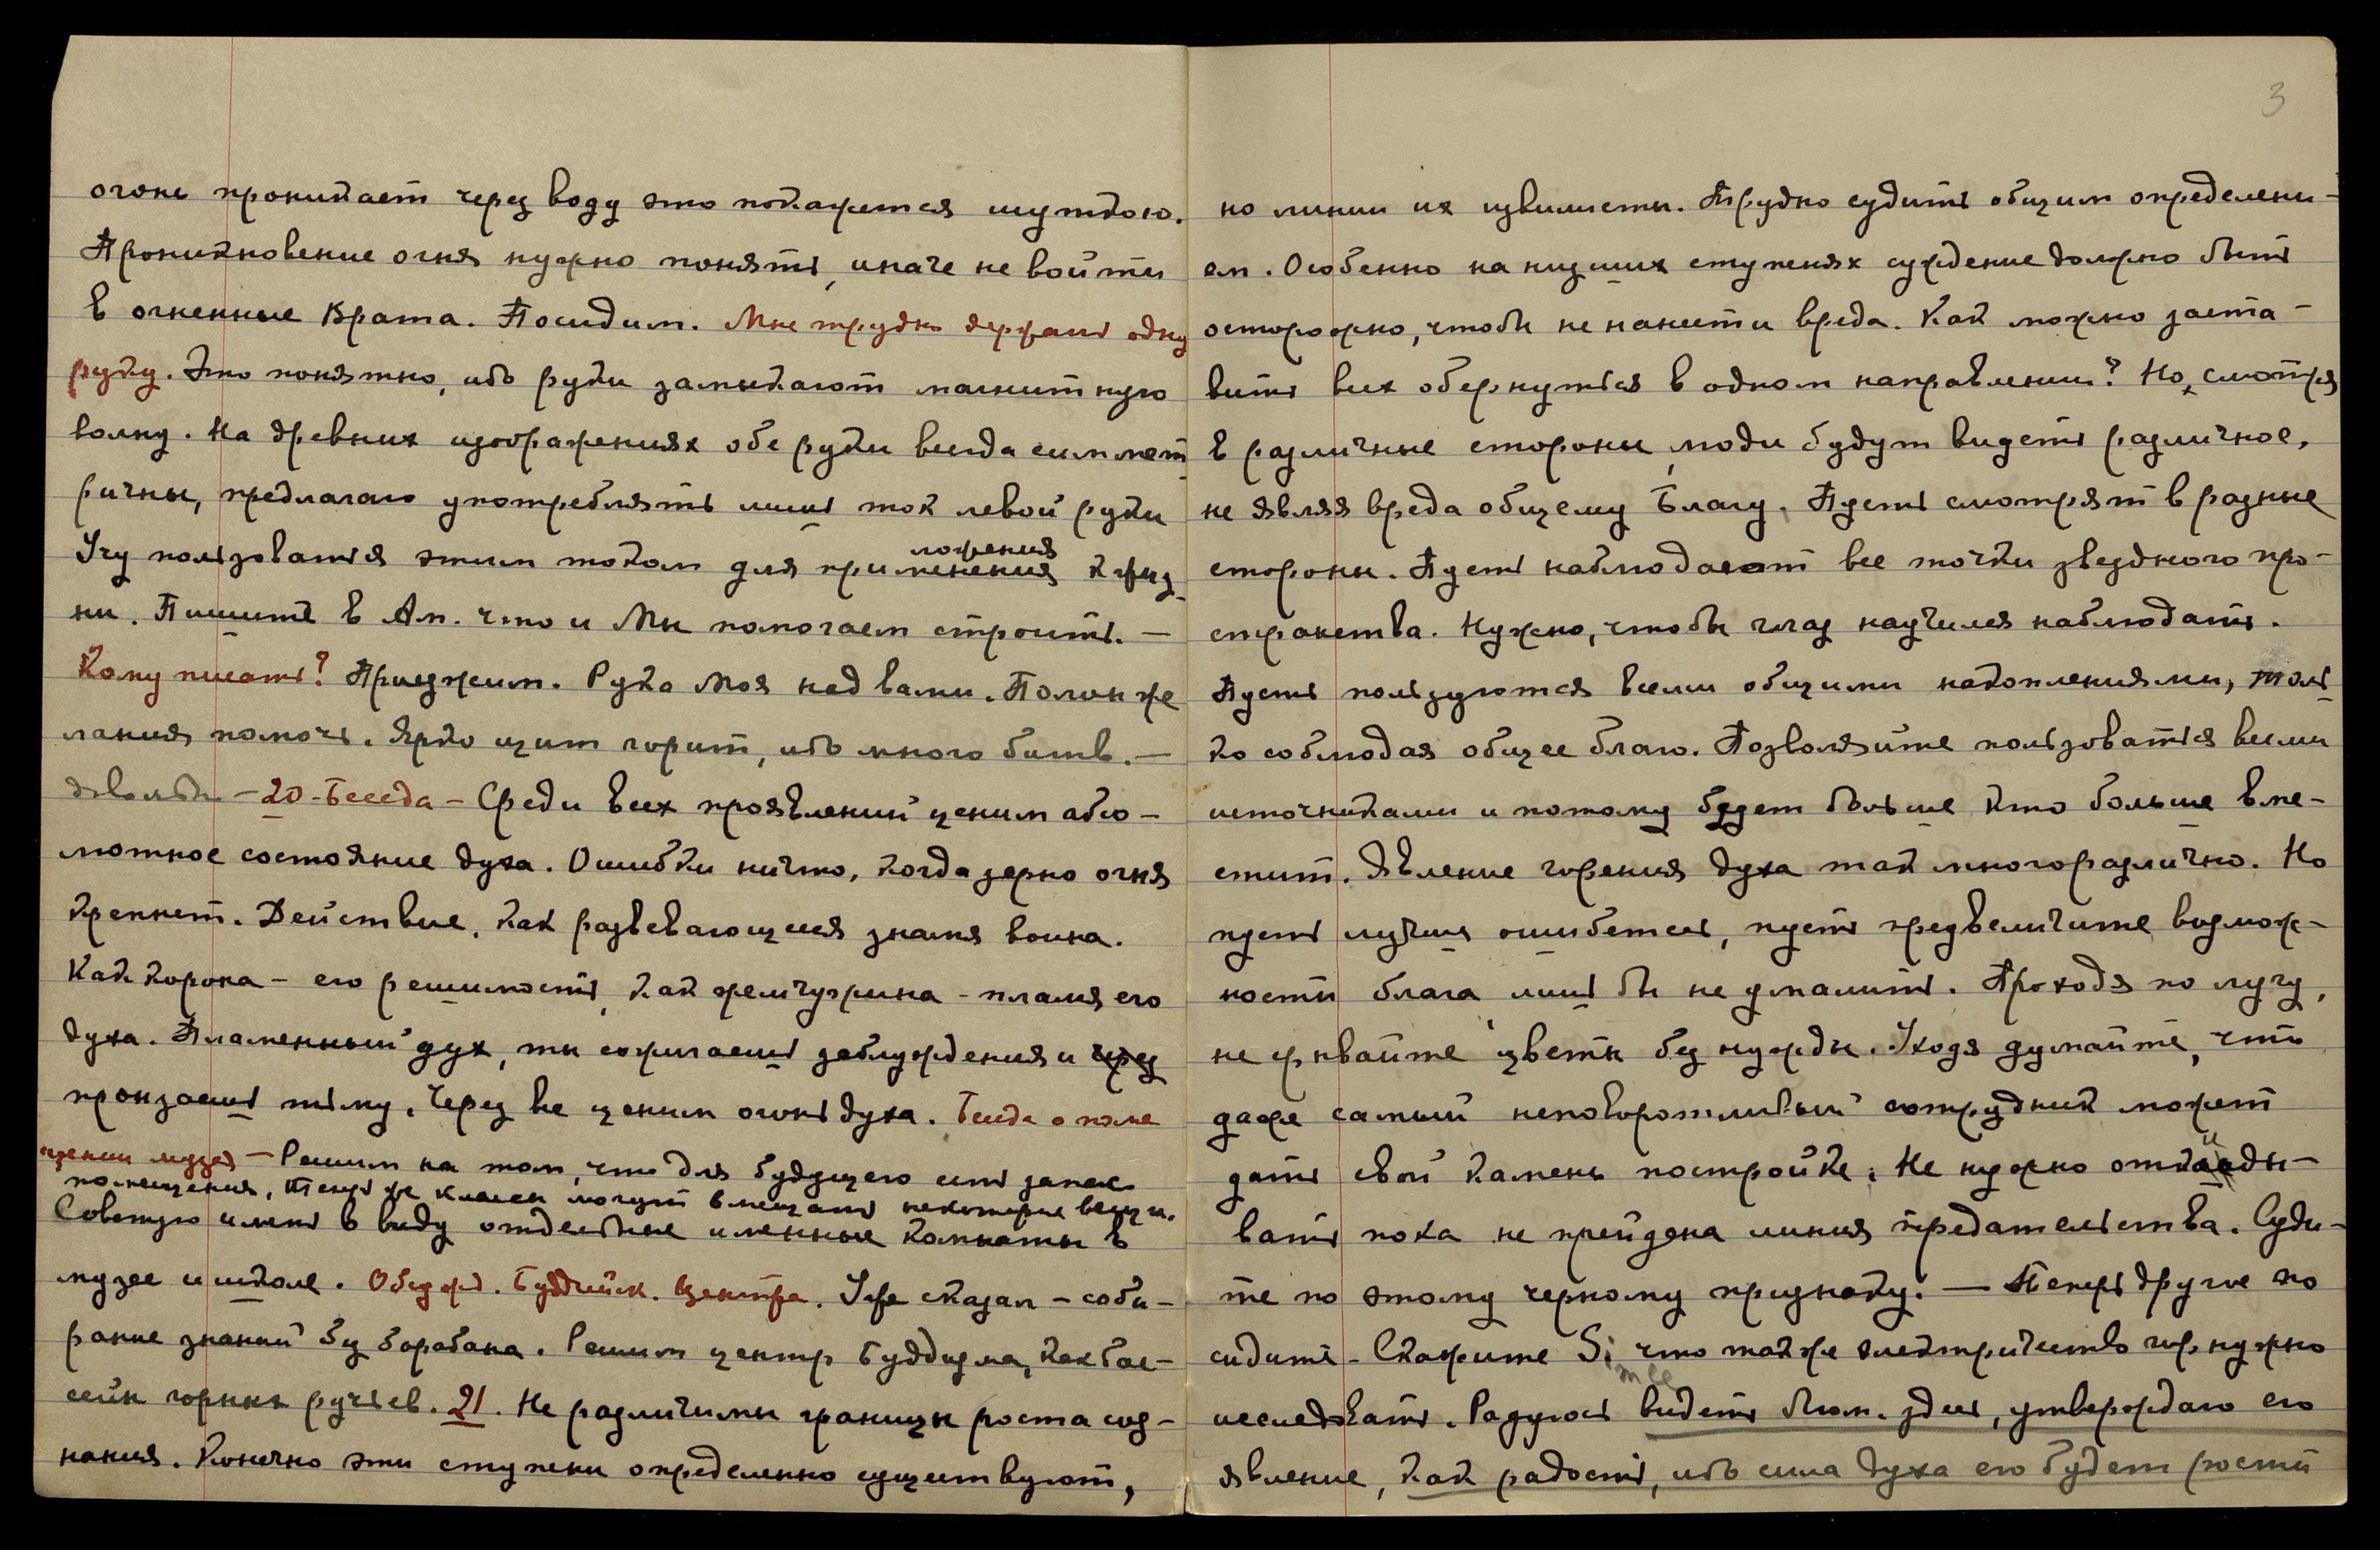 огонь проникает через воду это покажется шуткою.
Проникновение огня нужно понять, иначе не войти
в огненные Врата. Посидим. Мне трудно держать одну
руку. Это понятно, ибо руки замыкают магнитную
волну. На древних изображениях обе руки всегда симмет-
ричны, предлагаю употреблять лишь ток левой руки
ложения
Учу пользоваться этим током для применения к жиз-
ни. Пишите в Ам. что и Мы помогаем строить. —
Кому писать? Приезжим. Рука Моя над вами. Полон же
лания помочь. Ярко щит горит, ибо много битв. —
довольно — 20 - Беседа — Среди всех проявлений ценим абсо-
лютное состояние духа. Ошибки ничто, когда зерно огня
крепнет. Действие, как развевающееся знамя воина.
Как корона — его решимость, как жемчужина — пламя его
духа. Пламенный дух, ты сжигаешь заблуждения и чрез
пронзаешь тьму. Через все ценим огонь духа. Беседа о поме
щении музея — Решим на том, что для будущего есть запас
помещения, теперь же классы могут вмещать некоторые вещи.
Советую иметь в виду отдельные именные комнаты в
музее и школе. Обсужд. Буддийск. Центра. Уже сказал — соби-
рание знаний без барабана. Решим центр Буддизма, как бас-
сейн горных ручьев. 21. Не различимы границы роста соз-
нания. Конечно эти ступени определенно существуют,
3
но линии их извилисты. Трудно судить общим определени-
ем. Особенно на низших ступенях суждение должно быть
осторожно, чтобы не нанести вреда. Как можно заста-
вить всех обернуться в одном направлении? Но, смотря
в различные стороны, люди будут видеть различное,
не являя вреда общему Благу. Пусть смотрят в разные
стороны. Пусть наблюдают все точки звездного про-
странства. Нужно, чтобы глаз научился наблюдать.
Пусть пользуются всеми общими накоплениями, толь-
ко соблюдая общее благо. Позволяйте пользоваться всеми
источниками и потому будет больше кто больше вме-
стит. Явление горения духа так многоразлично. Но
пусть лучше ошибетесь, пусть предвеличите возмож-
ности блага, лишь бы не умалить. Проходя по лугу,
не рывайте цветы без нужды. Уходя думайте, что
даже самый неповоротливый сотрудник может
дать свой камень постройке. Не нужно откиды-
вать пока не пройдена линия предательства. Суди-
те по этому черному признаку. — Теперь другие по
сидите — Скажите Si что также электричество гор нужно
исследовать. Радуюсь видеть Люм. здесь, утверждаю его
явление, как радость, ибо сила духа его будет расти